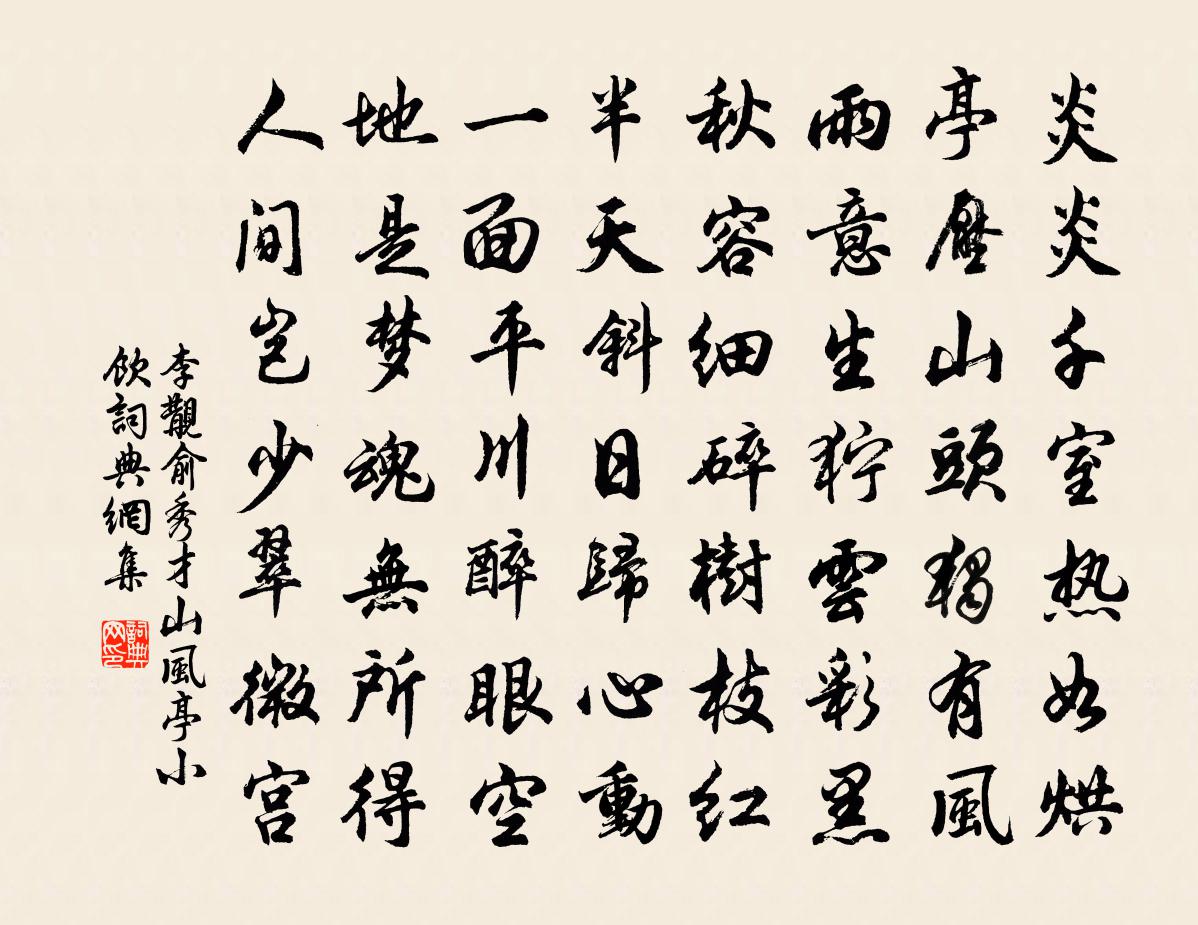 炎炎千室热如烘
亭壓山頭獨有風
雨意生狞雲彩黑
秋容细碎樹枝红
半天斜日歸心動
一面平川醉眼空
地是梦魂無所得
人间岂少翠微宫
李觀俞秀才山風亭小
飲詞典網集
詞典
网印